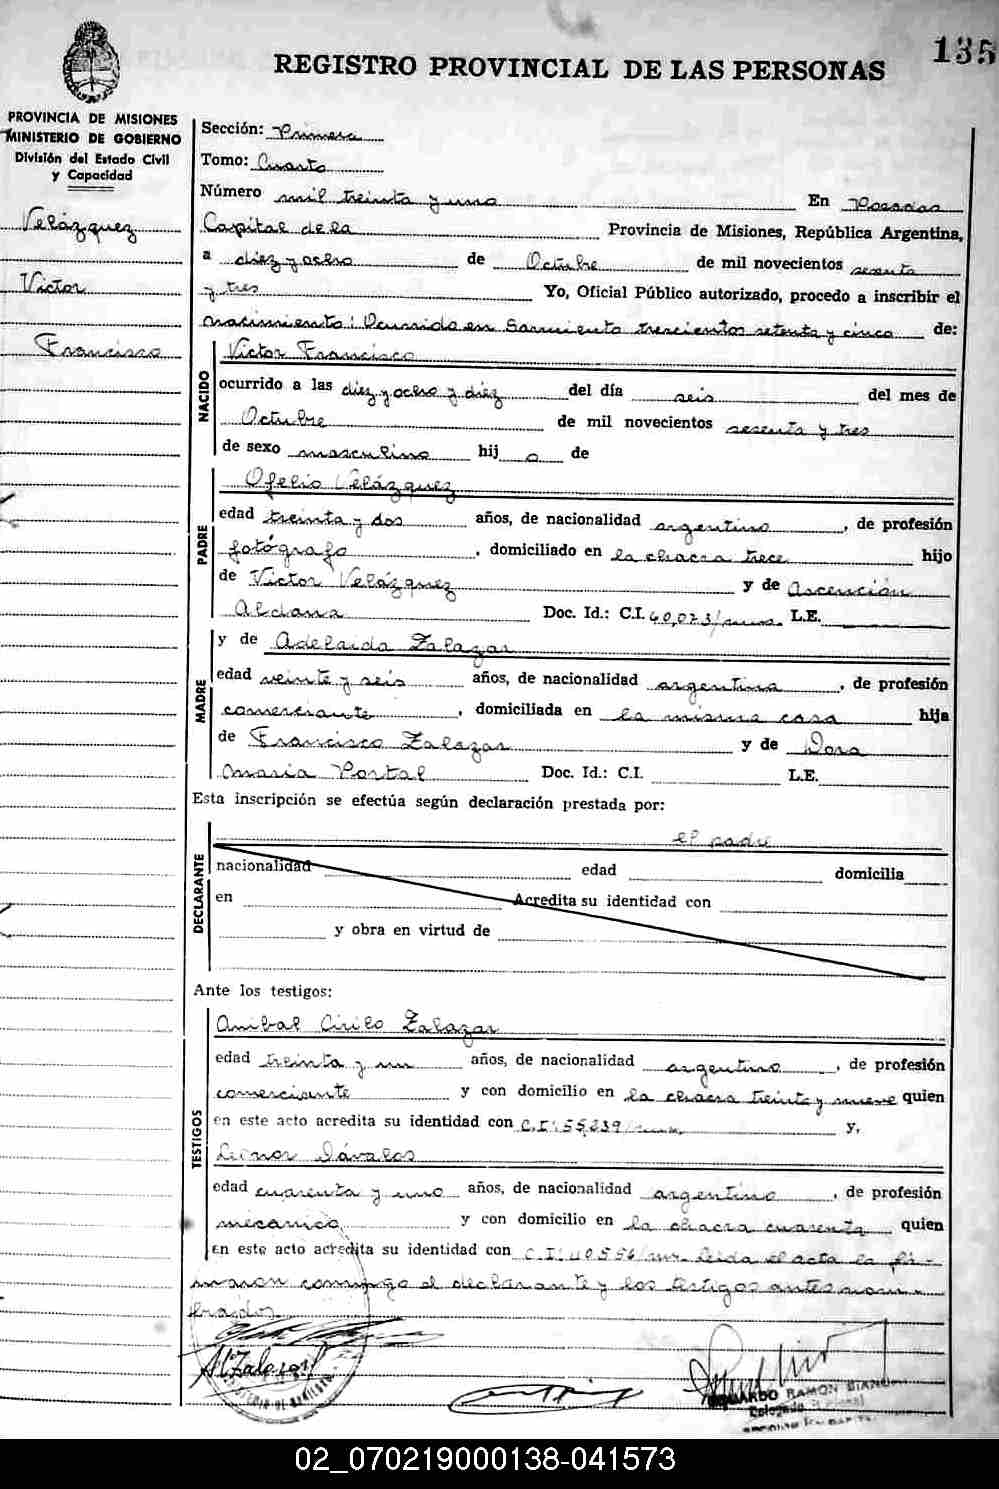 135
REGISTRO PROVINCIAL DE LAS PERSONAS
PROVINCIA DE MISIONES
MINISTERIO DE GOBIERNO
División del Estado Civil
y Capacidad
Velázquez
Victor
Francisco
Sección: Primera
Tomo: Cuarto
Número mil treinta y uno En Posadas
Capital de la Provincia de Misiones, República Argentina,
a diez y ocho de Octubre de mil novecientos sesenta
y tres Yo, Oficial Público autorizado, procedo a inscribir el
nacimiento: Ocurrido en Sarmiento trescientos setenta y cinco de:
NACIDO
Victor Francisco
ocurrido a las diez y ocho y diez del día seis del mes de
Octubre de mil novecientos sesenta y tres
de sexo masculino hijo de
PADRE
Ofelio Velázquez
edad treinta y dos años, de nacionalidad argentino, de profesión
fotógrafo, domiciliado en la chacra trece hijo
de Victor Velázquez y de Ascención
Aldana Doc. Id.: C.I. 40,073/mnes. L.E.
MADRE
y de Adelaida Zalazar
edad veinte y seis años, de nacionalidad argentina, de profesión
comerciante, domiciliada en la misma casa hija
de Francisco Zalazar y de Dora
Maria Portal Doc. Id.: C.I. L.E.
Esta inscripción se efectúa según declaración prestada por:
DECLARANTE
el padre
nacionalidad edad domicilia
en Acredita su identidad con
y obra en virtud de
Ante los testigos:
TESTIGOS
Anibal Cirilo Zalazar
edad treinta y un años, de nacionalidad argentino, de profesión
comerciante y con domicilio en la chacra treinta y nueve quien
en este acto acredita su identidad con C.I: 55,239/mns. y,
Leonor Dávalos
edad cuarenta y uno años, de nacionalidad argentino, de profesión
mecánico y con domicilio en la chacra cuarenta quien
en este acto acredita su identidad con C.I: 40556/mns. Leida el acta la fir-
maron conmigo el declarante y los testigos antes nom-
brados
AC Zalazar
EDUARDO RAMON BIANCHI
Delegado
02_070219000138-041573